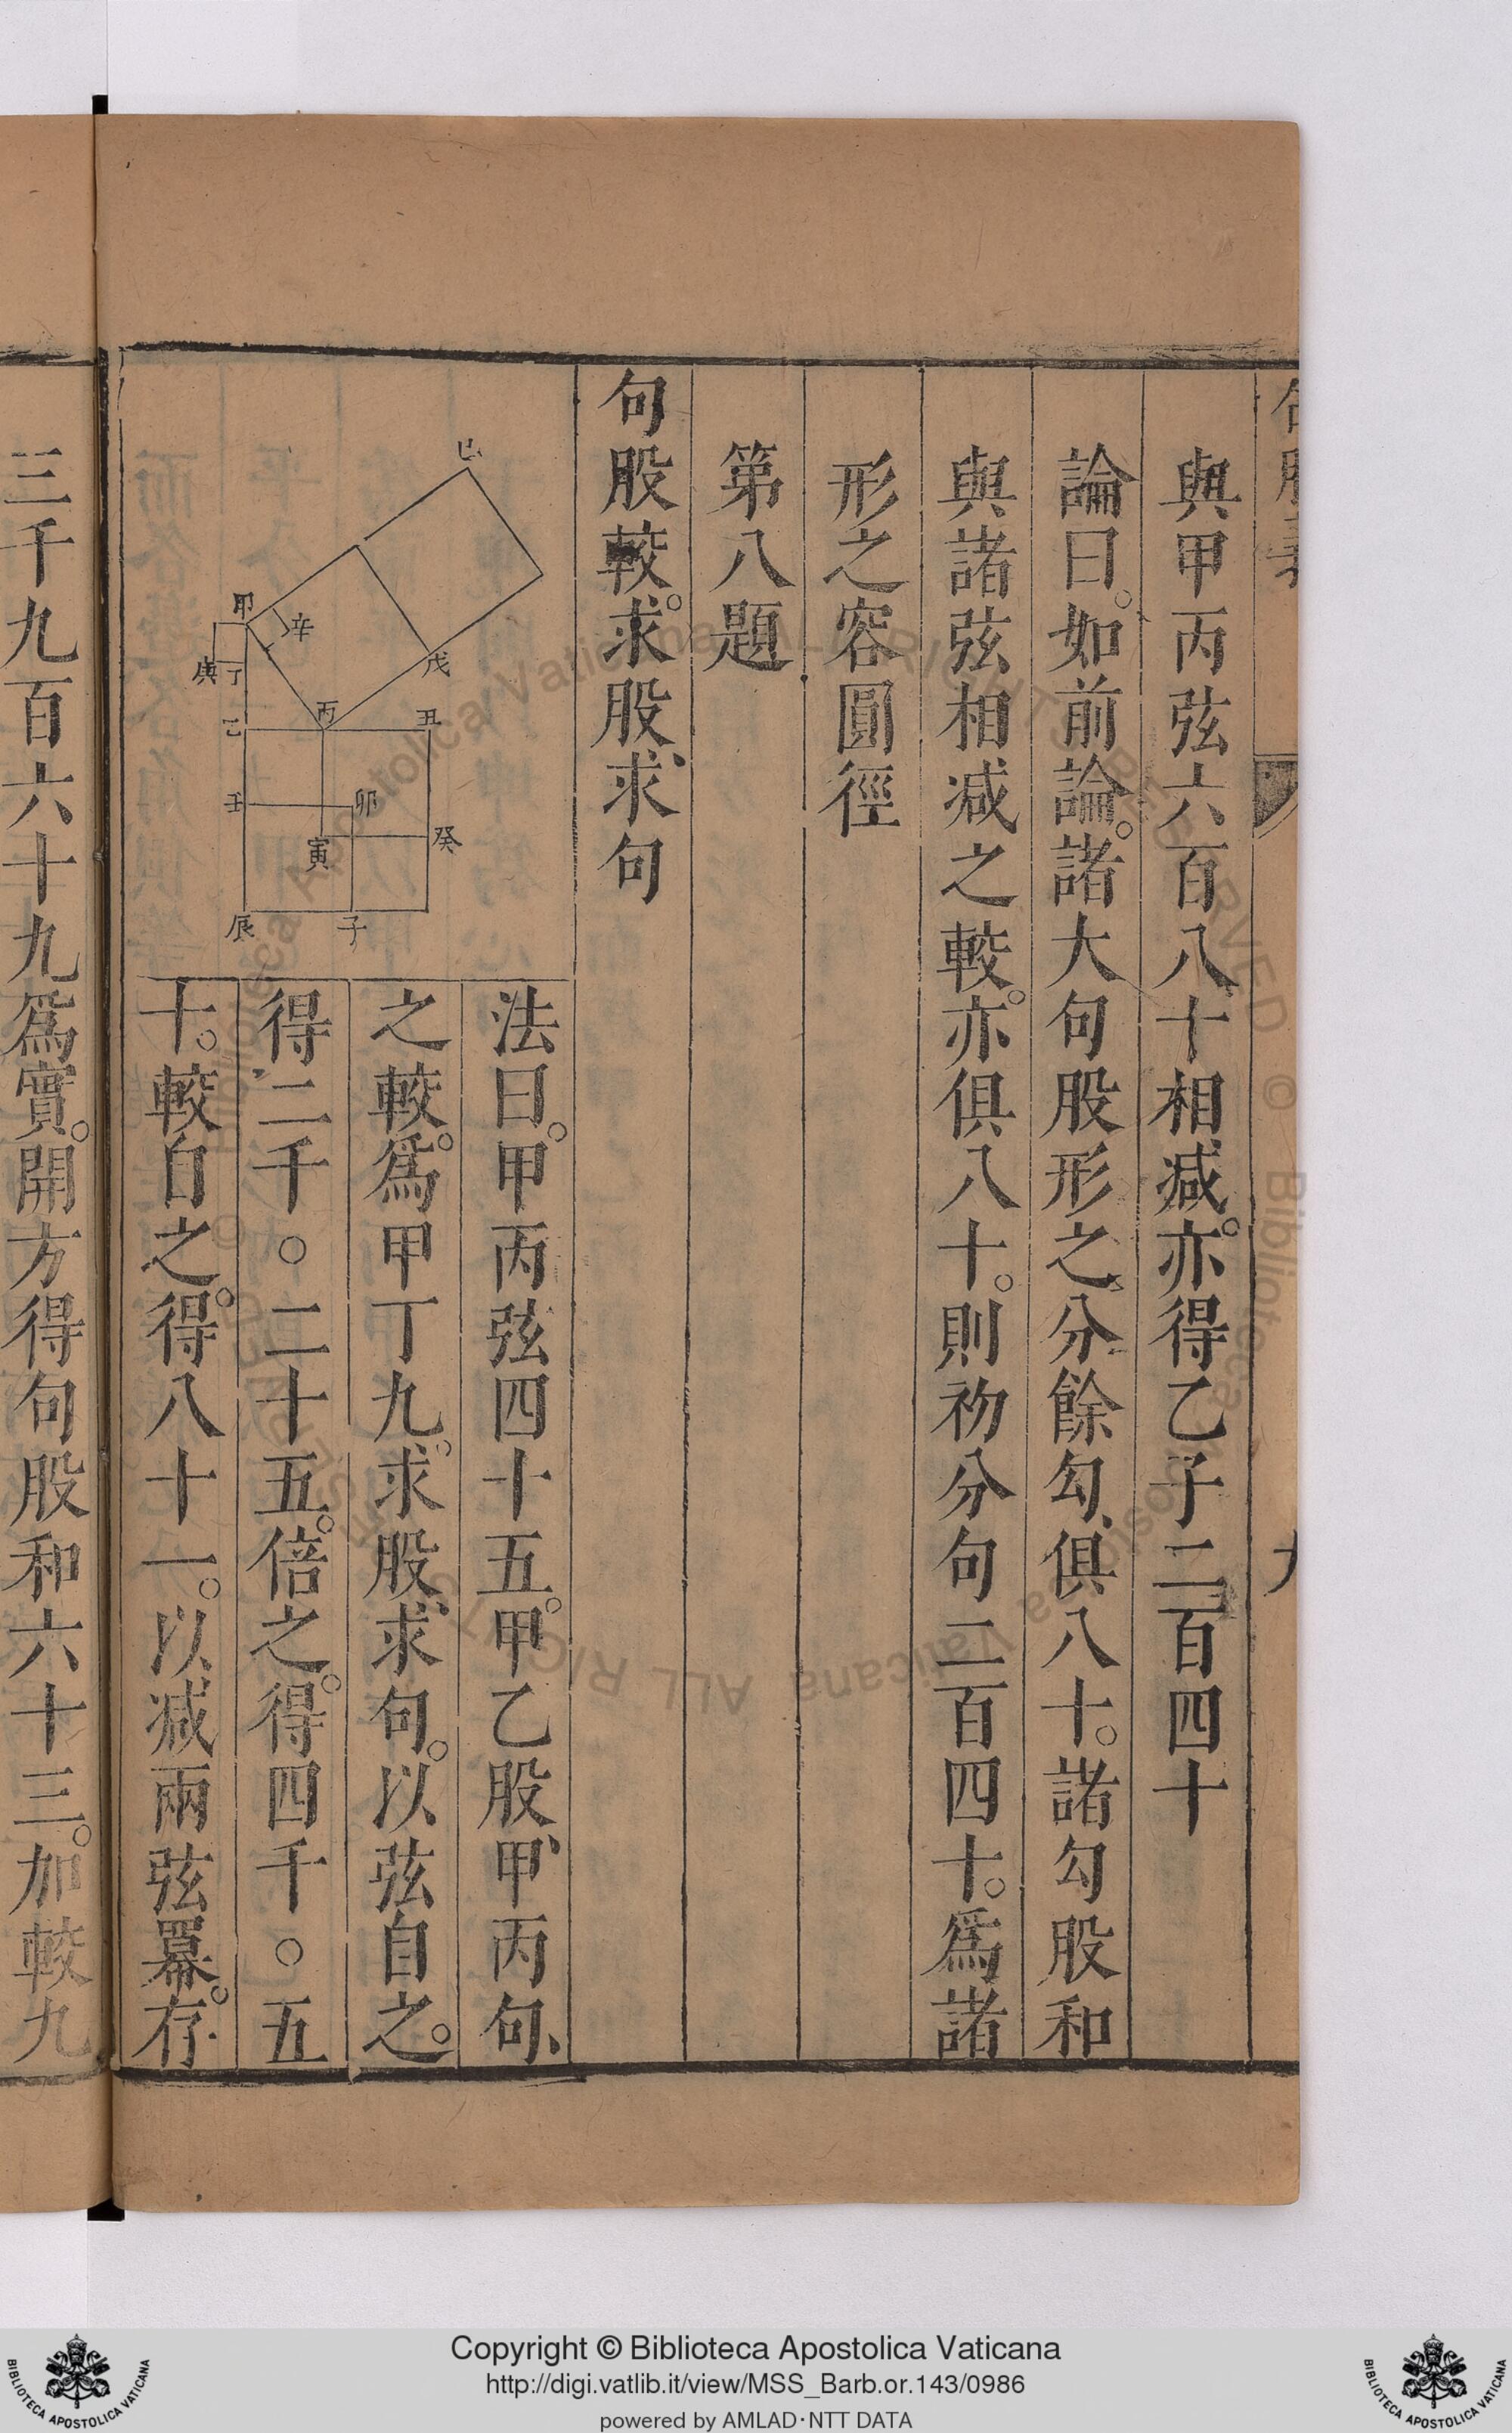 與甲丙弦六百八十相减亦得乙子二百四十
論曰如前論諸大句股形之分餘勾俱八十諸勾股和
與諸弦相减之較亦俱八十則初分句二百四十爲諸
形之容圓徑
第八題
句股較求股求句
巳
甲
辛
庚
丁
戊
乙
丙
丑
壬
卯
寅
癸
辰
子
法曰甲丙弦四十五甲乙股甲丙句
之較爲甲丁九求股求句以弦自之
得二千〇二十五倍之得四千〇五
十較自之得八十一以减兩弦羃存
三千九百六十九爲實開方得句股和六十三加較九
Copyright © Biblioteca Apostolica Vaticana
http://digi.vatlib.it/view/MSS_Barb.or.143/0986
powered by AMLAD·NTT DATA
BIBLIOTECA APOSTOLICA VATICANA
BIBLIOTECA APOSTOLICA VATICANA